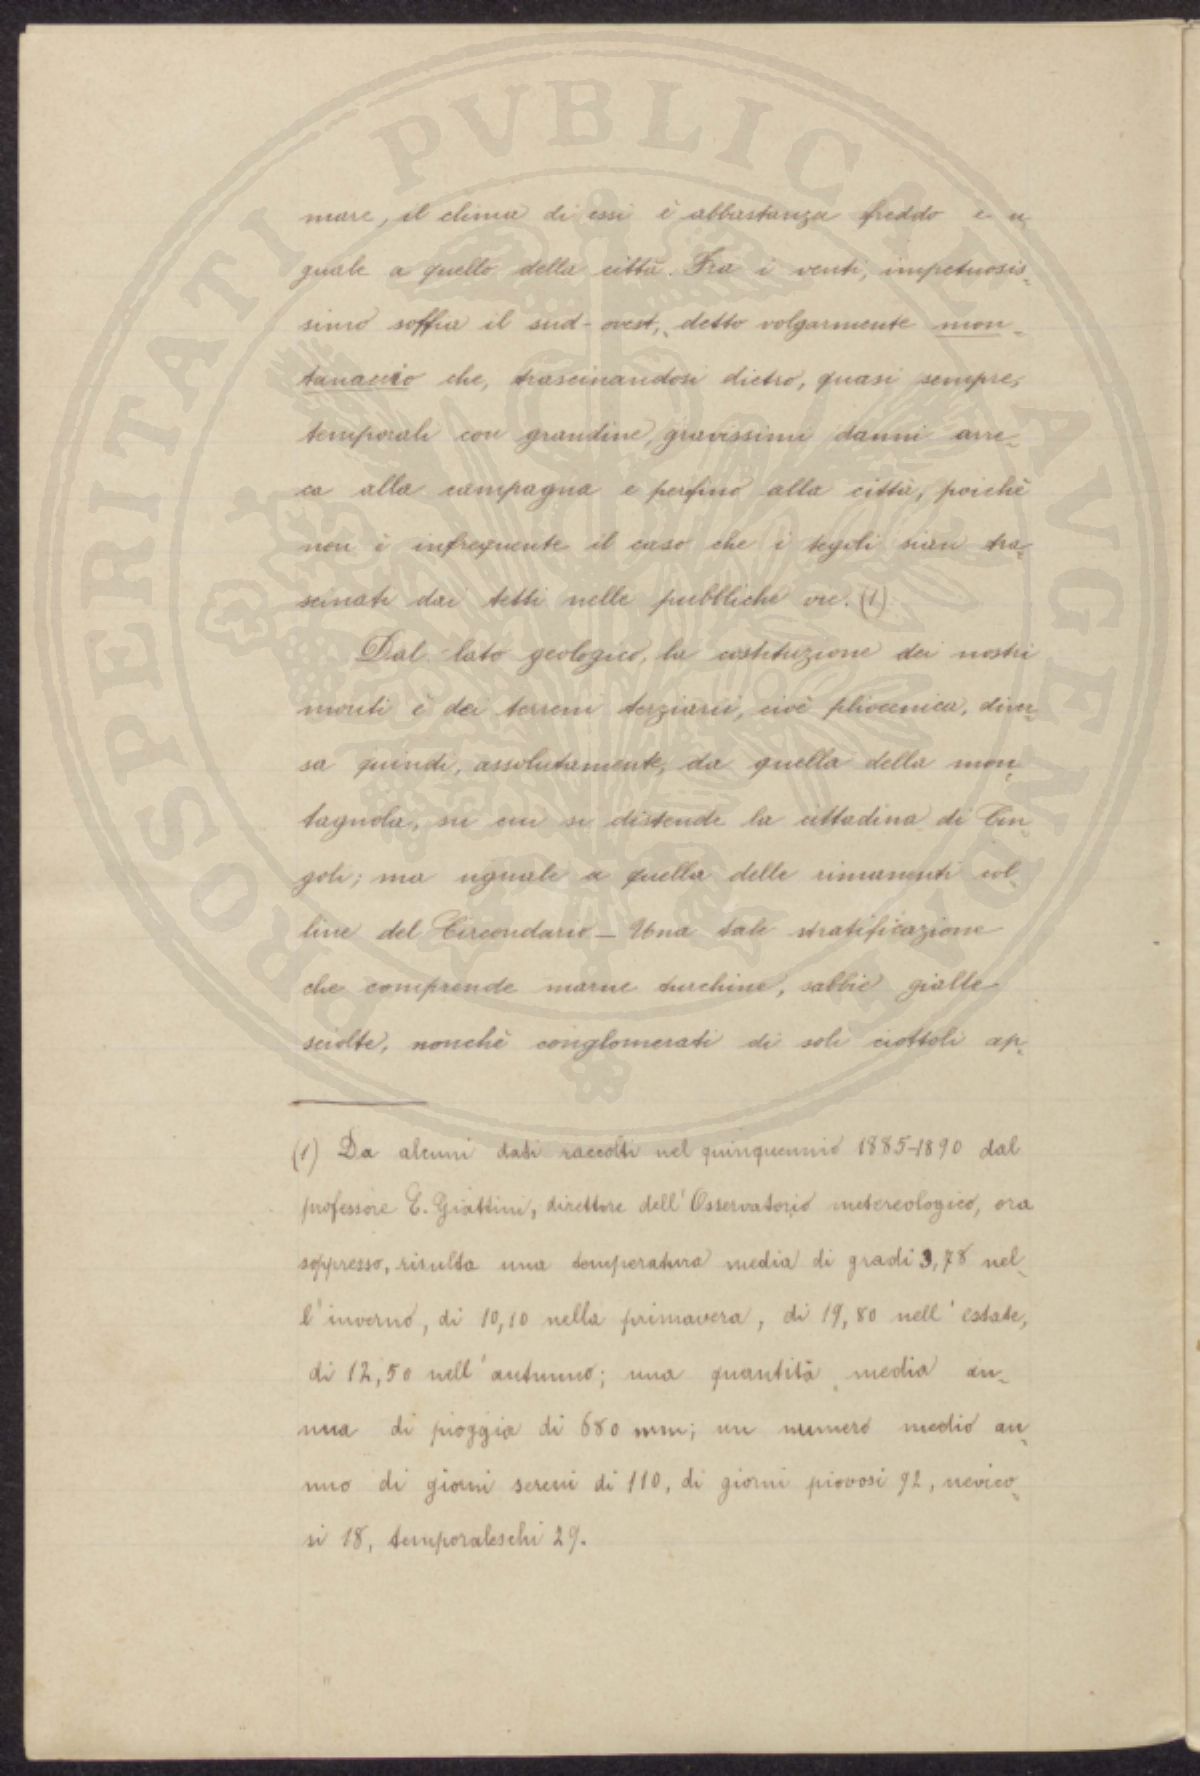 mare, il clima di essi è abbastanza freddo e u-
guale a quello della città. Fra i venti, impetuosis-
simo soffia il sud-ovest, detto volgarmente mon-
tanaccio che, trascinandosi dietro, quasi sempre,
temporali con grandine, gravissimi danni arre-
ca alla campagna e perfino alla città, poichè
non è infrequente il caso che i tegoli sian tra-
scinati dai tetti nelle pubbliche vie. (1)
Dal lato geologico, la costituzione dei nostri
monti è dei terreni terziarii, cioè pliocenica, diver-
sa quindi, assolutamente, da quella della mon-
tagnola, su cui si distende la cittadina di Cin-
goli; ma uguale a quella delle rimanenti col-
line del Circondario — Una tale stratificazione
che comprende marne turchine, sabbie gialle
sciolte, nonchè conglomerati di soli ciottoli ap-
(1) Da alcuni dati raccolti nel quinquennio 1885-1890 dal
professore E. Giattini, direttore dell'Osservatorio metereologico, ora
soppresso, risulta una temperatura media di gradi 3,78 nel-
l'inverno, di 10,10 nella primavera, di 19,80 nell'estate,
di 12,50 nell'autunno; una quantità media an-
nua di pioggia di 680 mm; un numero medio an-
nuo di giorni sereni di 110, di giorni piovosi 92, nevico-
si 18, temporaleschi 29.
PROSPERITATI PVBLICAE AVGENDAE